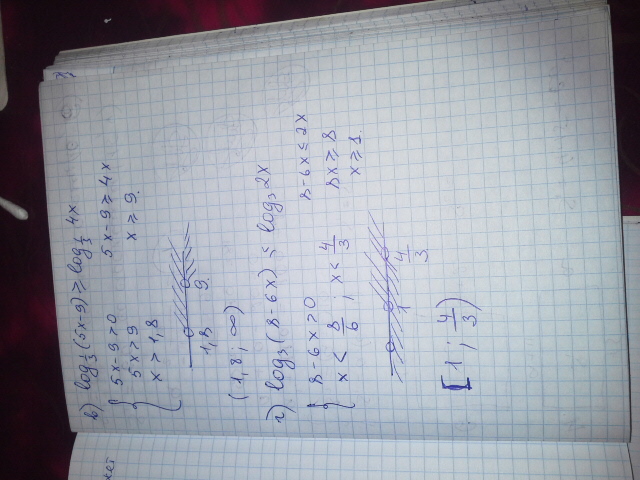 в) log_{1/3} (5x-9) ≥ log_{1/3} 4x
5x-9>0 5x-9 ≥ 4x
5x>9 x ≥ 9.
x>1,8
1,8 9.
(1,8; ∞)
г) log₃(8-6x) ≤ log₃ 2x
8-6x>0 8-6x ≤ 2x
x < 8/6; x < 4/3 8x ≥ 8
x ≥ 1.
1 4/3
[1; 4/3)